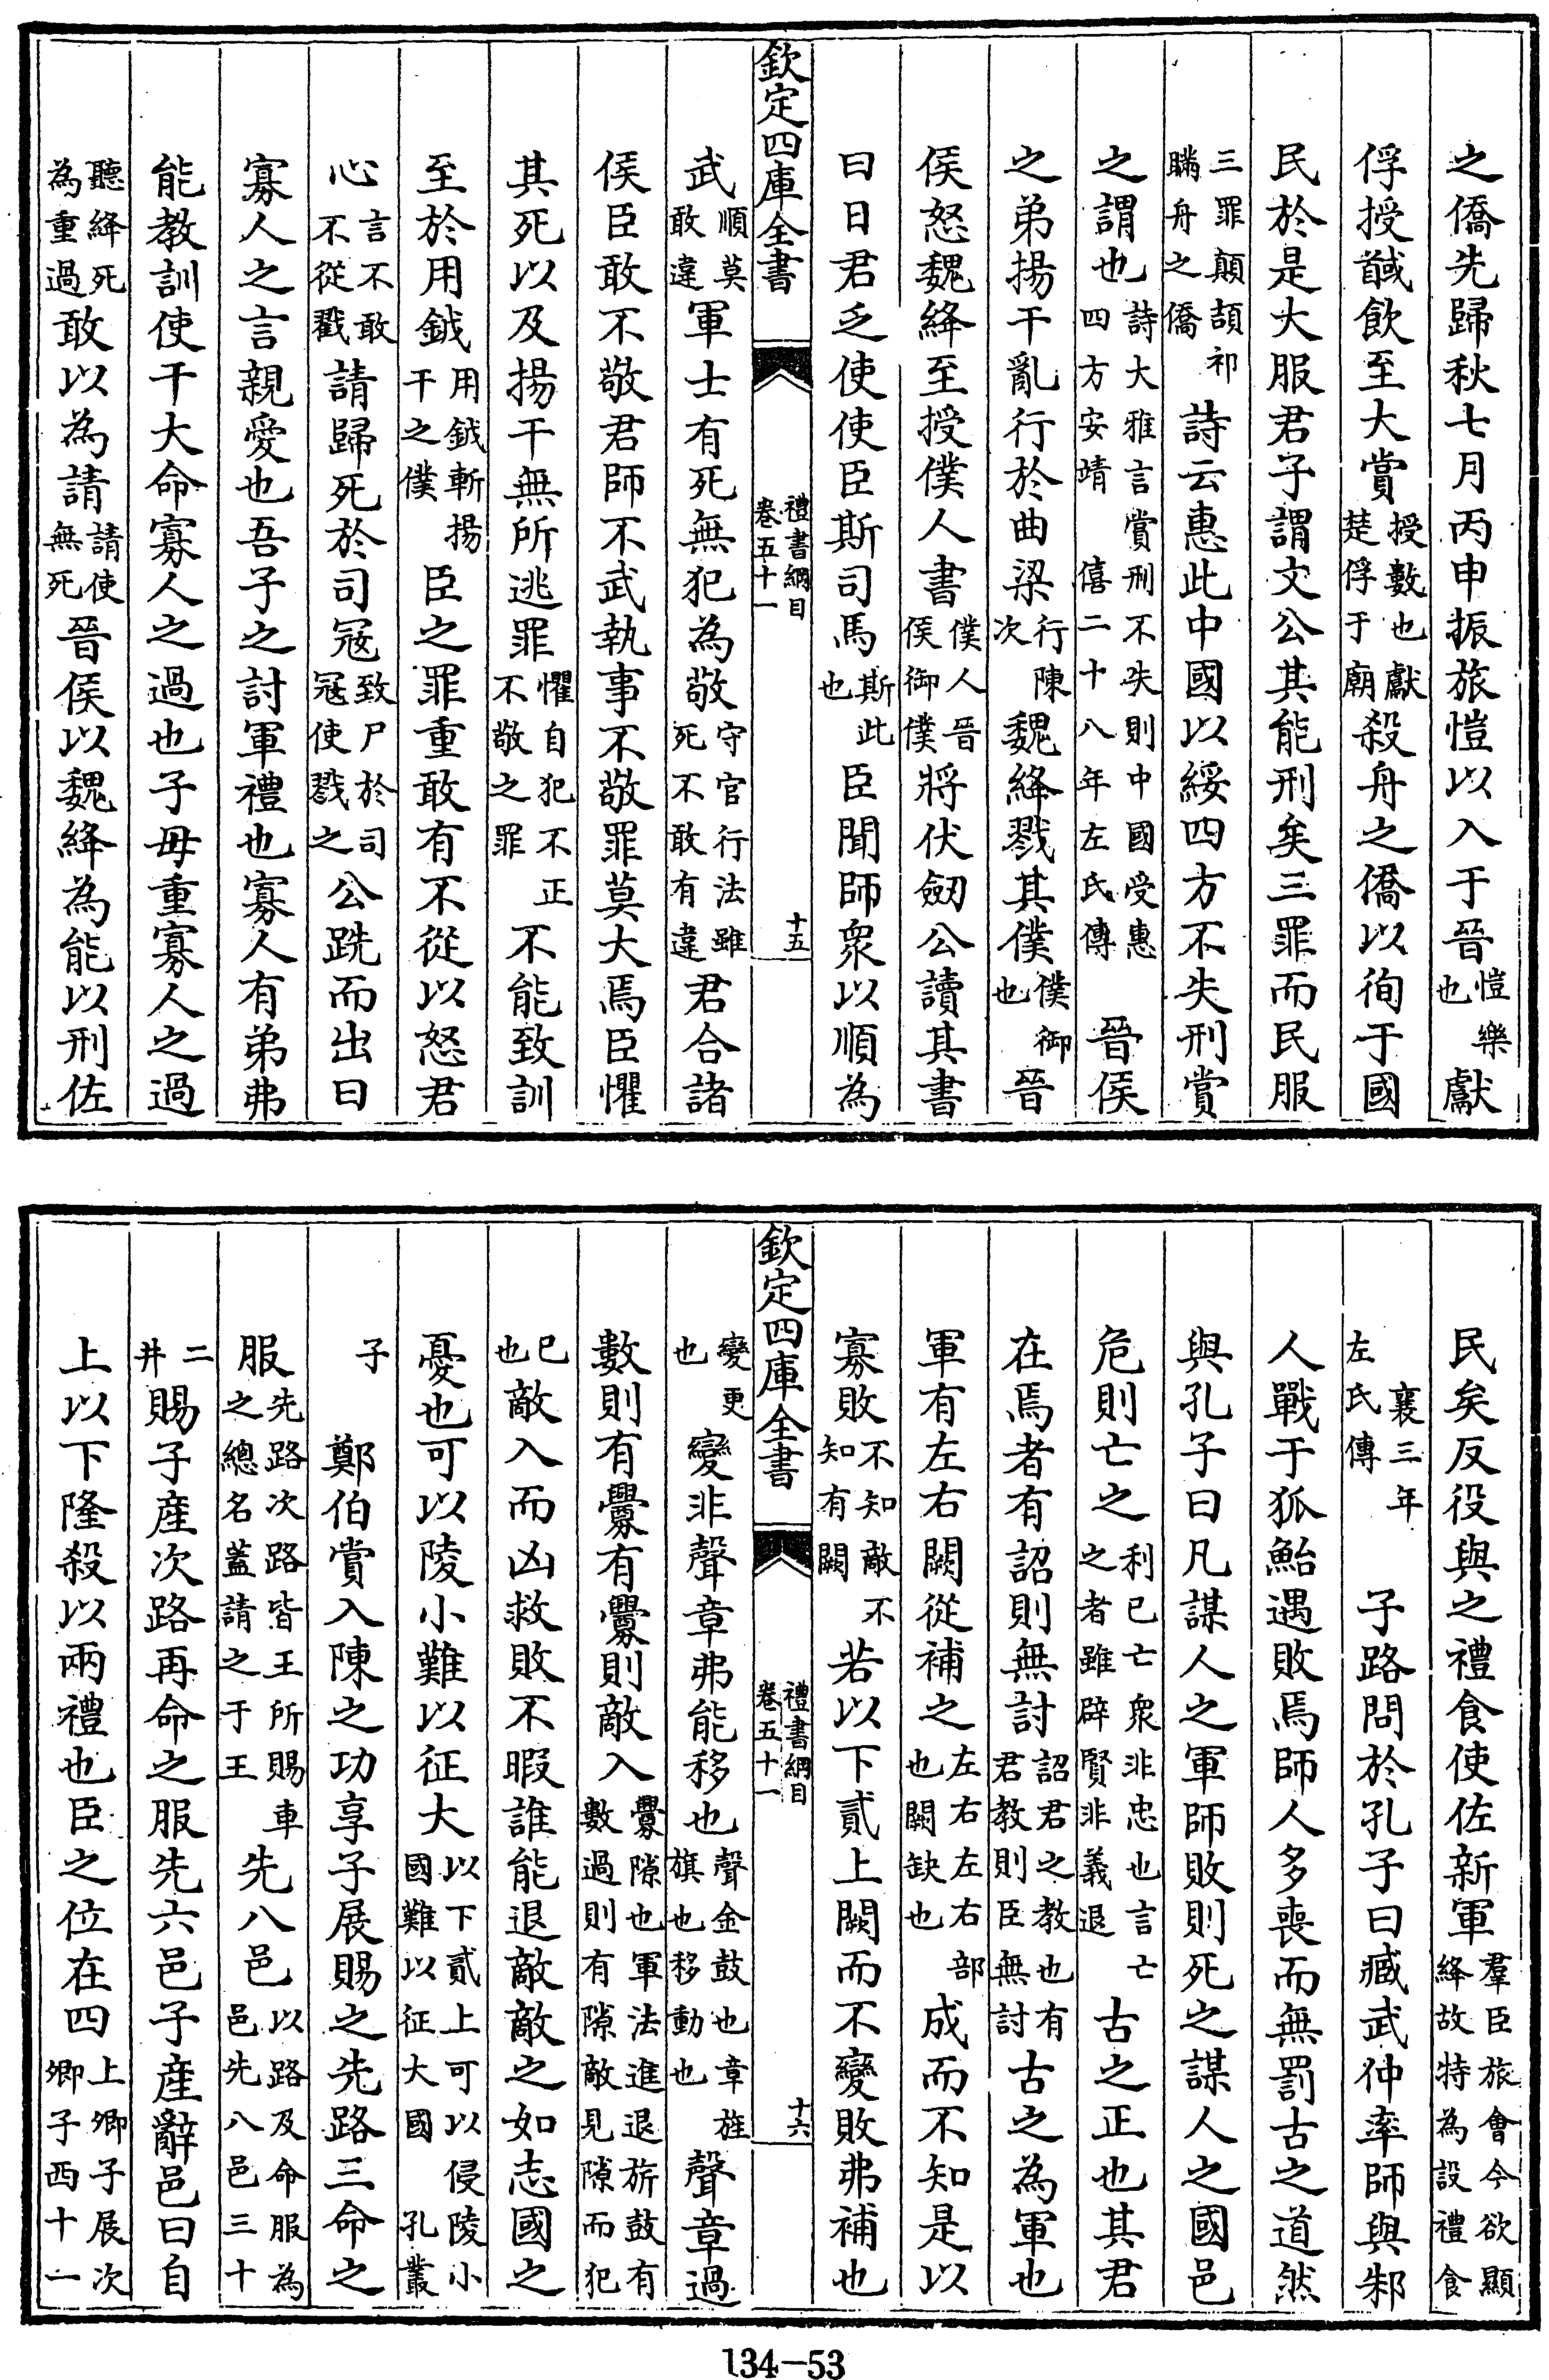 之僑先歸秋七月丙申振旅愷以入于晉愷樂也獻
俘授馘飲至大賞授數也獻楚俘于廟殺舟之僑以徇于國
民於是大服君子謂文公其能刑矣三罪而民服
三罪顛頡祁瞞舟之僑詩云惠此中國以綏四方不失刑賞
之謂也詩大雅言賞刑不失則中國受惠四方安靖 僖二十八年左氏傳 晉侯
之弟揚干亂行於曲梁行陳次魏絳戮其僕僕御也晉
侯怒魏絳至授僕人書僕人晉侯御僕將伏劒公讀其書
曰日君乏使使臣斯司馬斯此也臣聞師衆以順為
欽定四庫全書 禮書綱目卷五十一 十五
武順莫敢違軍士有死無犯為敬守官行法雖死不敢有違君合諸
侯臣敢不敬君師不武執事不敬罪莫大焉臣懼
其死以及揚干無所逃罪懼自犯不正不敬之罪不能致訓
至於用鉞用鉞斬揚干之僕臣之罪重敢有不從以怒君
心言不敢不從戮請歸死於司冦致尸於司冦使戮之公跣而出曰
寡人之言親愛也吾子之討軍禮也寡人有弟弗
能教訓使干大命寡人之過也子毋重寡人之過
聽絳死為重過敢以為請請使無死晉侯以魏絳為能以刑佐
民矣反役與之禮食使佐新軍羣臣旅會今欲顯絳故特為設禮食
襄三年左氏傳 子路問於孔子曰臧武仲率師與邾
人戰于狐鮐遇敗焉師人多喪而無罰古之道然
與孔子曰凡謀人之軍師敗則死之謀人之國邑
危則亡之利已亡衆非忠也言亡之者雖辟賢非義退古之正也其君
在焉者有詔則無討詔君之教也有君教則臣無討古之為軍也
軍有左右闕從補之左右左右部也闕缺也成而不知是以
寡敗不知敵不知有闕若以下貳上闕而不變敗弗補也
欽定四庫全書 禮書綱目卷五十一 十六
變更也變非聲章弗能移也聲金鼓也章旌旗也移動也聲章過
數則有釁有釁則敵入釁隙也軍法進退旂鼓有數過則有隙敵見隙而犯
已也敵入而凶救敗不暇誰能退敵敵之如志國之
憂也可以陵小難以征大以下貳上可以侵陵小國難以征大國 孔叢
子 鄭伯賞入陳之功享子展賜之先路三命之
服先路次路皆王所賜車之總名蓋請之于王先八邑以路及命服為邑先八邑三十
二井賜子產次路再命之服先六邑子產辭邑曰自
上以下隆殺以兩禮也臣之位在四上卿子展次卿子西十一
134-53